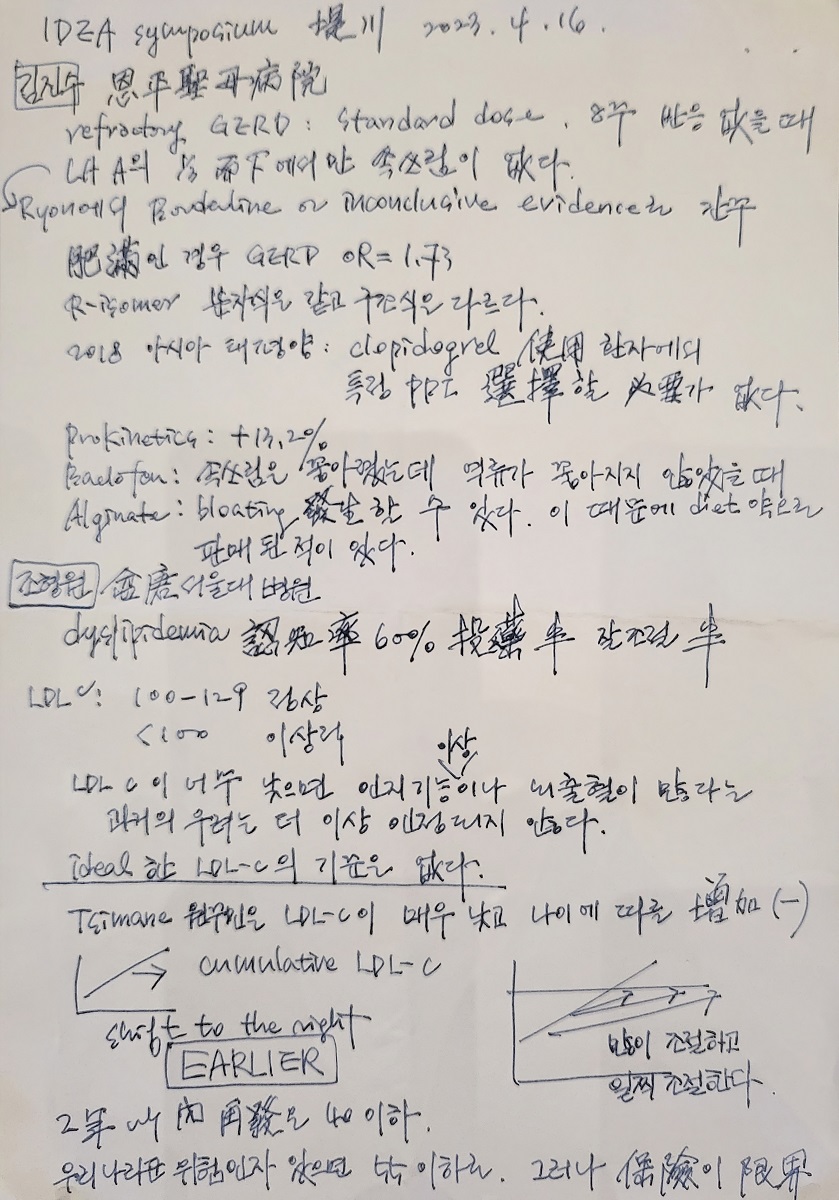 IDEA symposium 堤川 2023. 4. 16.
김진수 恩平聖母病院
refractory GERD : standard dose, 8주 반응 없을 때
LA A의 1/3 而下에서만 속쓰림이 없다.
Ryon에서 Borderline or inconclusive evidence로 간주
肥滿인 경우 GERD OR= 1.73
R-isomer 분자식은 같고 구조식은 다르다.
2018 아시아 태평양 : clopidogrel 使用 환자에서
특정 PPI 選擇할 必要가 없다.
Prokinetics : +13.2%
Baclofen : 속쓰림은 좋아졌는데 역류가 좋아지지 않았을 때
Alginate : bloating 發生할 수 있다. 이 때문에 diet 약으로
판매된 적이 있다.
조형원 盆唐서울대 병원
dyslipidemia 認知率 60% 投藥 半 잘조절 半
LDL C : 100-129 정상
<100 이상적
이상
LDL C이 너무 낮으면 인지기능이나 뇌출혈이 많다는
과거의 우려는 더 이상 인정되지 않는다.
ideal 한 LDL-C의 기준은 없다.
Tsimane 원주민은 LDL-C이 매우 낮고 나이에 따른 增加 (-)
cumulative LDL-C
shift to the right
EARLIER
많이 조절하고
일찍 조절한다.
2年 內 再發은 40 이하.
우리나라도 위험인자 있으면 55 이하로. 그러나 保險이 限界